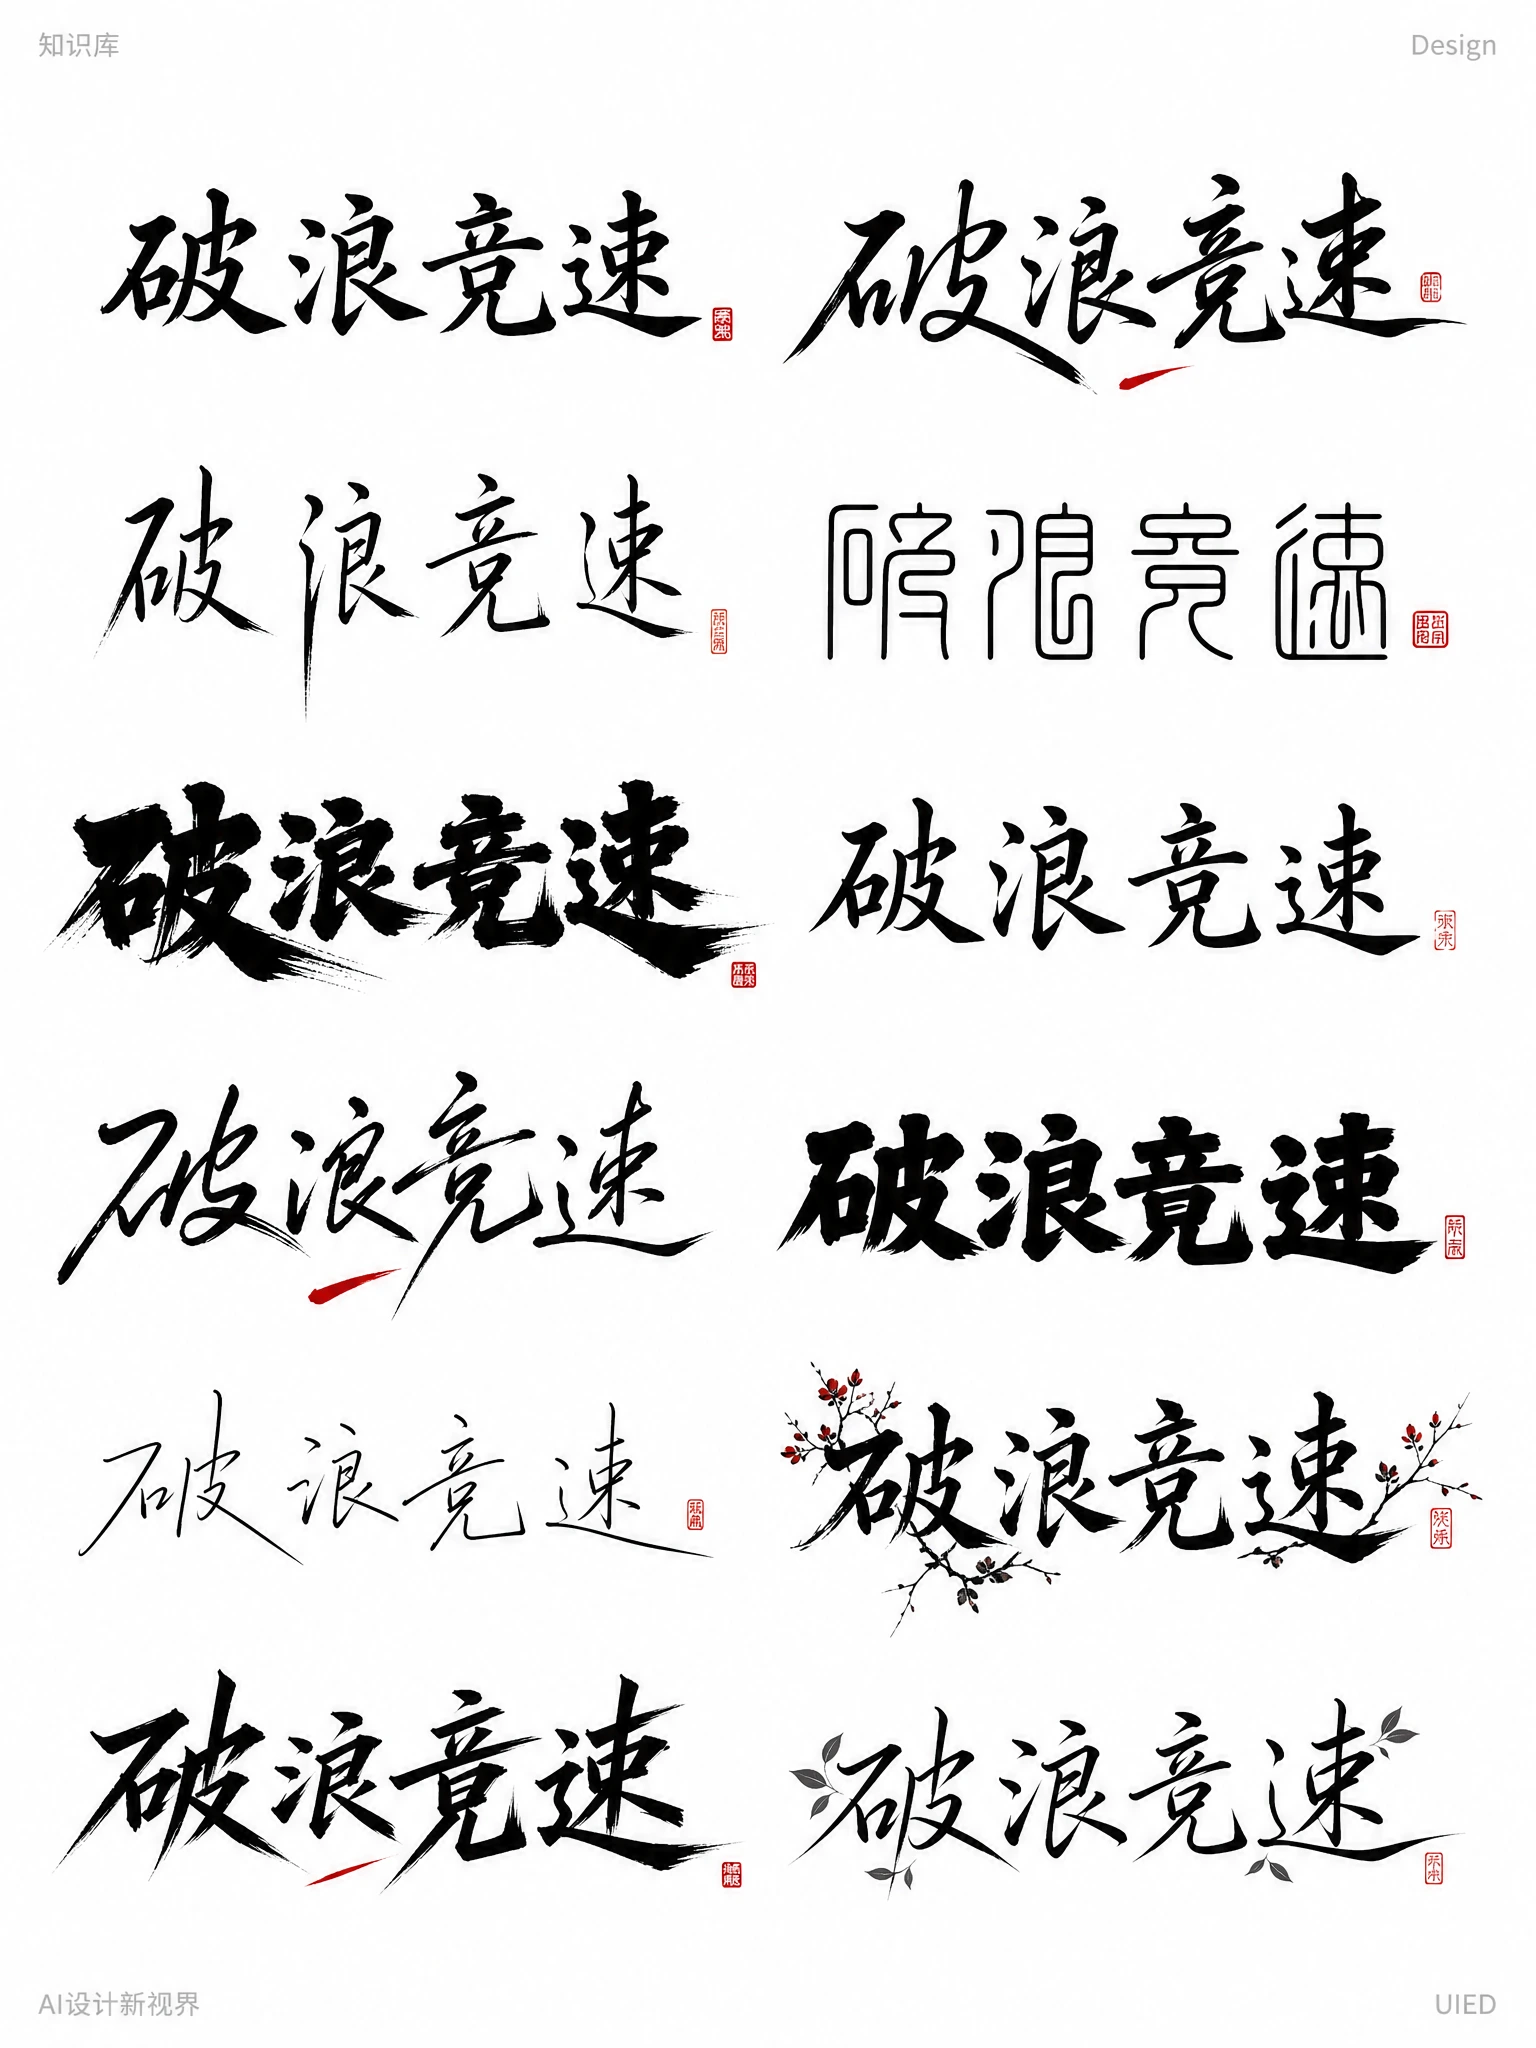 知识库 Design
破浪竞速 破浪竞速
破浪竞速 破浪竞速
破浪竞速 破浪竞速
破浪竞速 破浪竞速
破浪竞速 破浪竞速
破浪竞速 破浪竞速
AI设计新视界 UIED